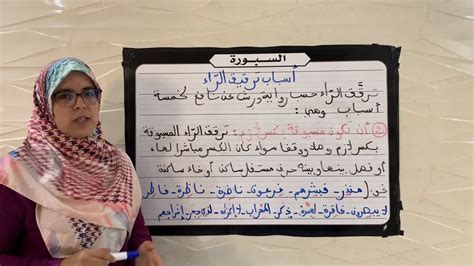 السبورة
أسباب ترقيق الراء
ترقق الراء حسب رواية ورش عن نافع لخمسة
أسباب وهي:
أن تكون مسبوقة بكسر لازم: ترقق الراء المسبوقة
بكسر لازم وصلا ووقفا سواء كان الكسر مباشرا لها،
أو فصل بينها وبينه حرف مستفل ساكن أو خاء ساكنة
نحو (منذر - فبشرهم - فرعون - ناظرة - فاطر
يبصرون - فاقرة - لعبرة - ذكر - المحراب - لإكراه